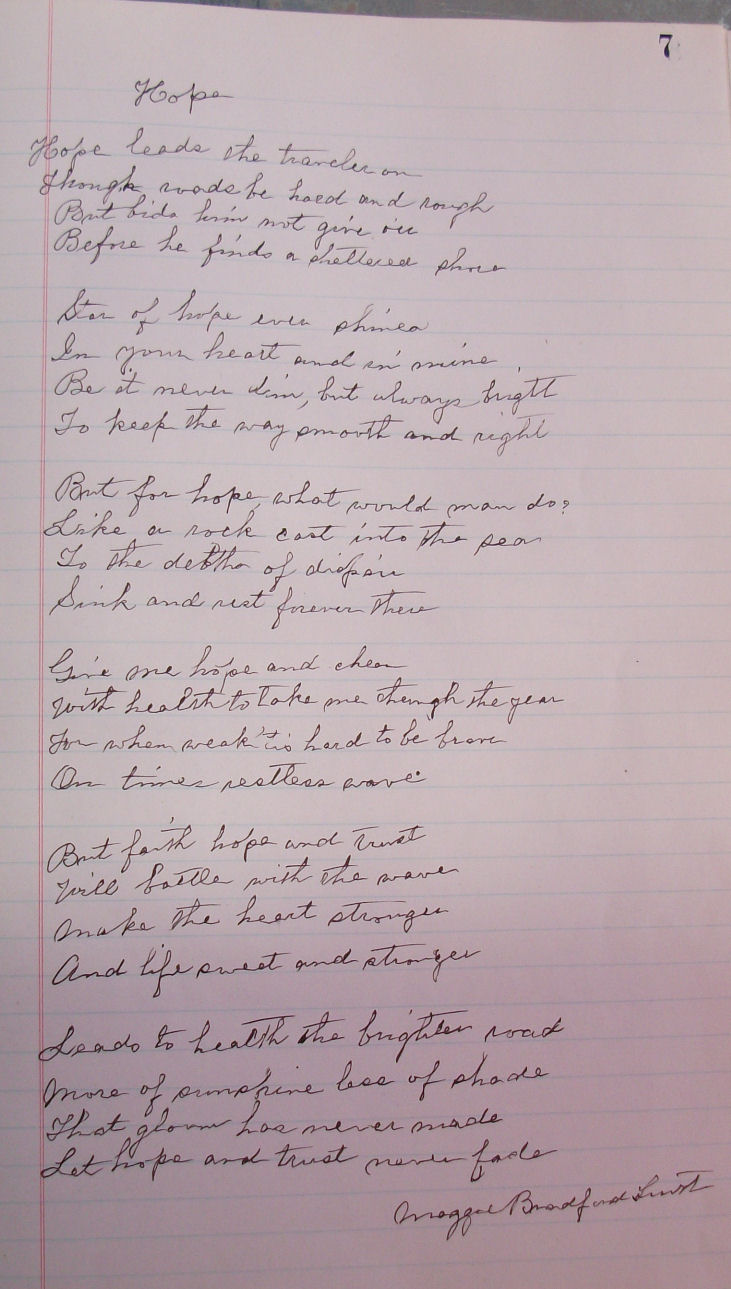 7
Hope
Hope leads the traveler on
Though roads be hard and rough
But bids him not give in
Before he finds a sheltered shore
Star of hope ever shines
In your heart and in mine
Be it never dim, but always bright
To keep the way smooth and right
But for hope, what would man do?
Like a rock cast into the sea
To the depths of dispair
Sink and rest forever there
Give me hope and cheer
With health to take me through the year
For when weak 'tis hard to be brave
On times restless wave
But faith hope and trust
Will battle with the wave
Make the heart stronger
And life sweet and stronger
Leads to health the brighter road
More of sunshine less of shade
That gloom has never made
Let hope and trust never fade
Maggie Bradford